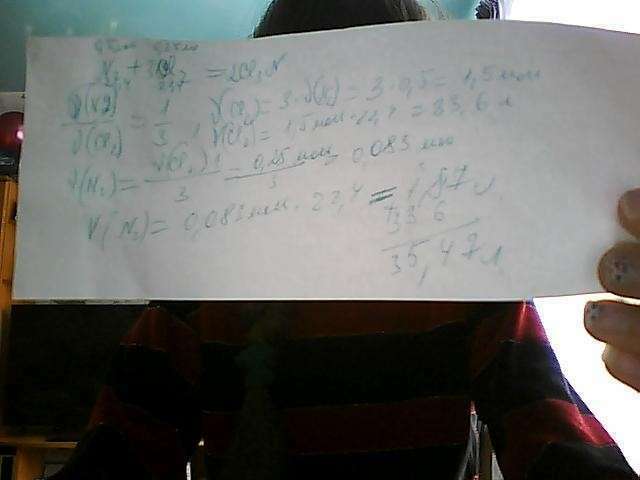 N₂ + 3Cl₂ = 2Cl₃N
ν(N2) / ν(Cl₂) = 1 / 3 , ν(Cl₂) = 3·ν(N₂) = 3·0,5 = 1,5 моль
V(Cl₂) = 1,5 моль · 22,4 = 33,6 л
ν(N₂) = ν(Cl₂)·1 / 3 = 0,25 моль / 3 = 0,083 моль
V(N₂) = 0,083 моль · 22,4 = 1,87 л
+ 33 6
35,47 л